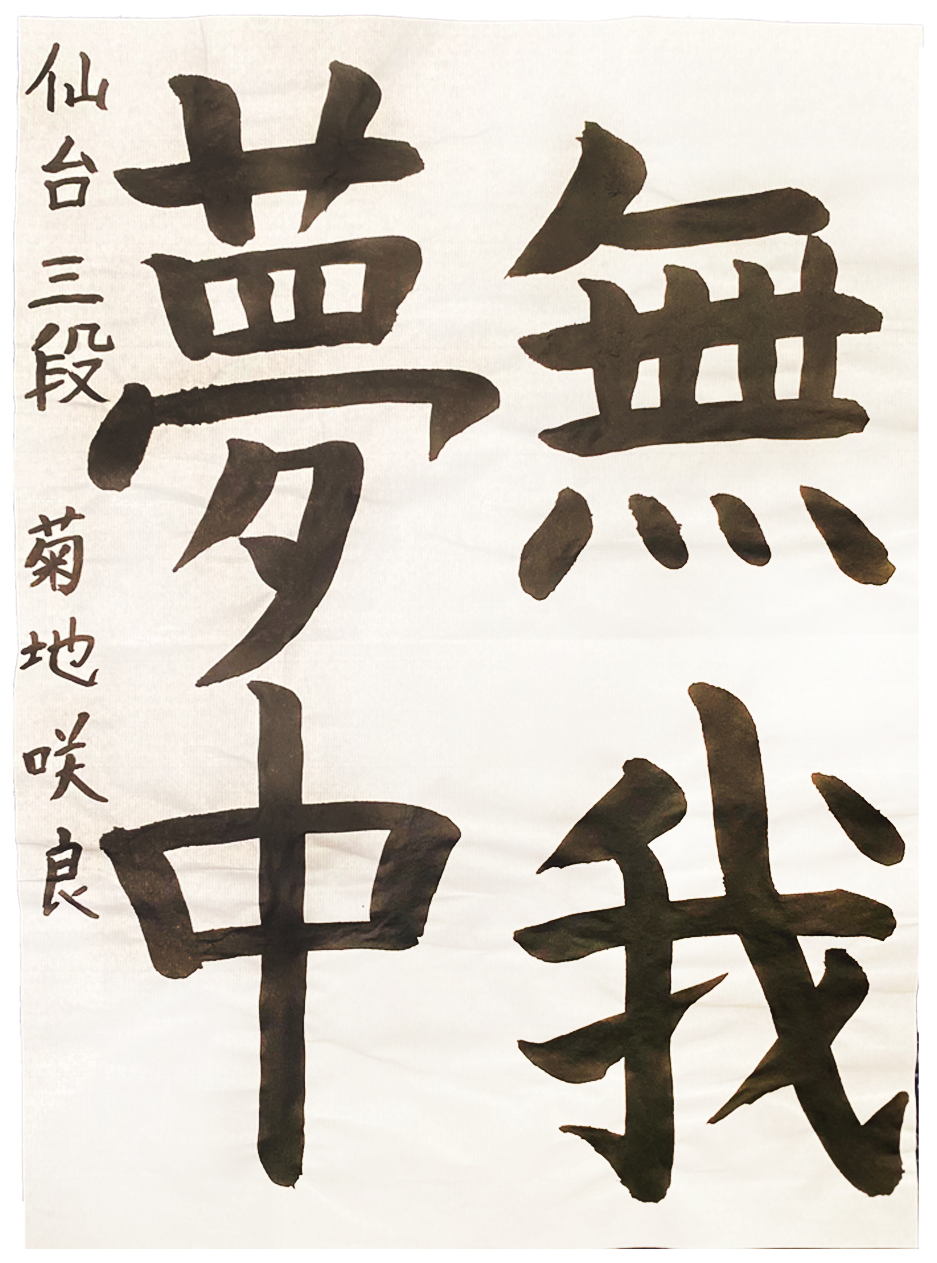 無我
夢中
仙台 三段 菊地咲良